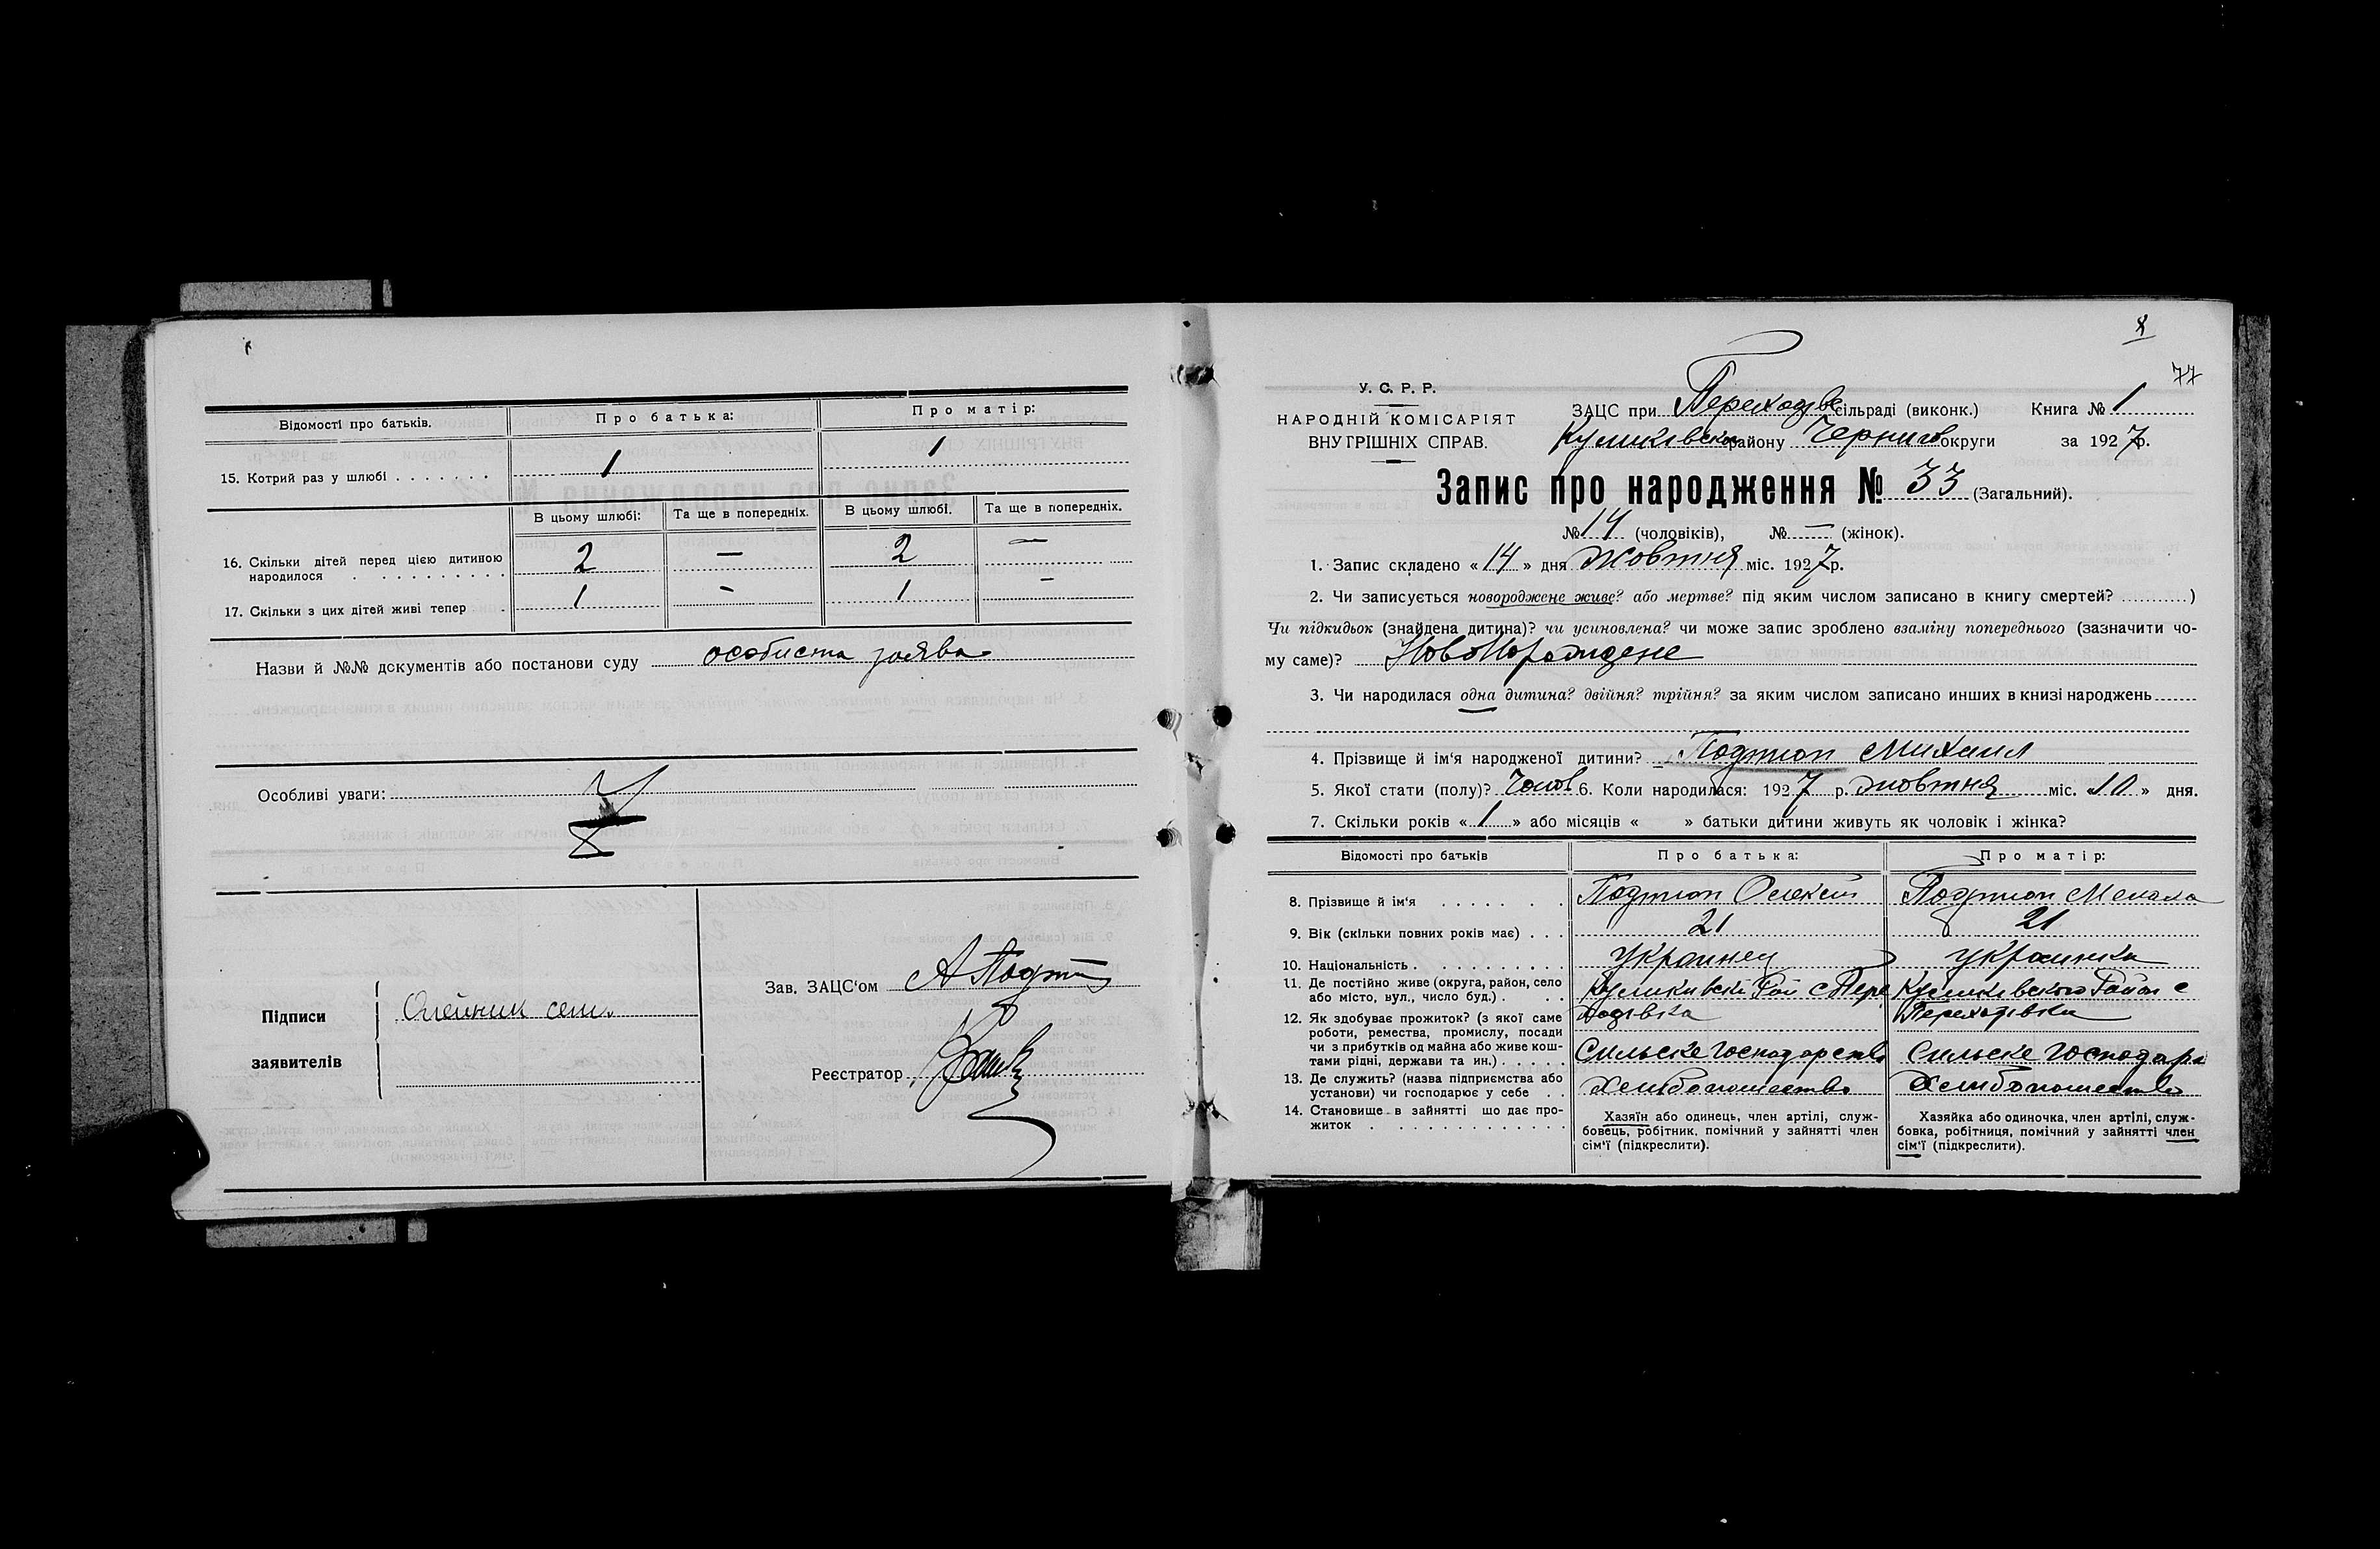 Відомості про батьків. Про батька: Про матір:
15. Котрий раз у шлюбі 1 1
В цьому шлюбі: Та ще в попередніх. В цьому шлюбі. Та ще в попередніх.
16. Скільки дітей перед цією дитиною
народилося 2 — 2 —
17. Скільки з цих дітей живі тепер 1 - 1 -
Назви й №№ документів або постанови суду особиста заява
Особливі уваги:
Підписи
заявителів
Олейник
Зав. ЗАЦС'ом
Реєстратор
8
77
У. С. Р. Р.
НАРОДНІЙ КОМІСАРІЯТ
ВНУТРІШНІХ СПРАВ.
ЗАЦС при сільраді (виконк.) Книга № 1
Куликівско району Чернигов округи за 1927р.
Запис про народження № 33 (Загальний).
№ 14 (чоловіків), № — (жінок).
1. Запис складено «14» дня жовтня міс. 1927р.
2. Чи записується новороджене живе? або мертве? під яким числом записано в книгу смертей? )
Чи підкидьок (знайдена дитина)? чи усиновлена? чи може запис зроблено взаміну попереднього (зазначити чо-
му саме)?
3. Чи народилася одна дитина? двійня? трійня? за яким числом записано инших в книзі народжень
4. Прізвище й ім'я народженої дитини? Подтоп Михаил
5. Якої стати (полу)? Чолов 6. Коли народилася: 1927 р. жовтня міс. «10» дня.
7. Скільки років «1» або місяців « » батьки дитини живуть як чоловік і жінка?
Відомості про батьків Про батька: Про матір:
8. Прізвище й ім'я
9. Вік (скільки повних років має) 21 21
10. Національність Украинец Украинка
11. Де постійно живе (округа, район, село
або місто, вул., число буд.)
Куликивскі Рай с Пере
ходівка
Куликівского Район с
Переходівки
12. Як здобуває прожиток? (з якої саме
роботи, ремества, промислу, посади
чи з прибутків од майна або живе кош-
тами рідні, держави та ин.)
Сильске Господарство
Сильске Господар
13. Де служить? (назва підприємства або
установи) чи господарює у себе
14. Становище в зайнятті що дає про-
життя
Хазяїн або одинець, член артілі, служ-
бовець, робітник, помічний у зайнятті член
сім'ї (підкреслити).
Хазяйка або одиночка, член артілі, служ-
бовка, робітниця, помічний у зайнятті член
сім'ї (підкреслити).